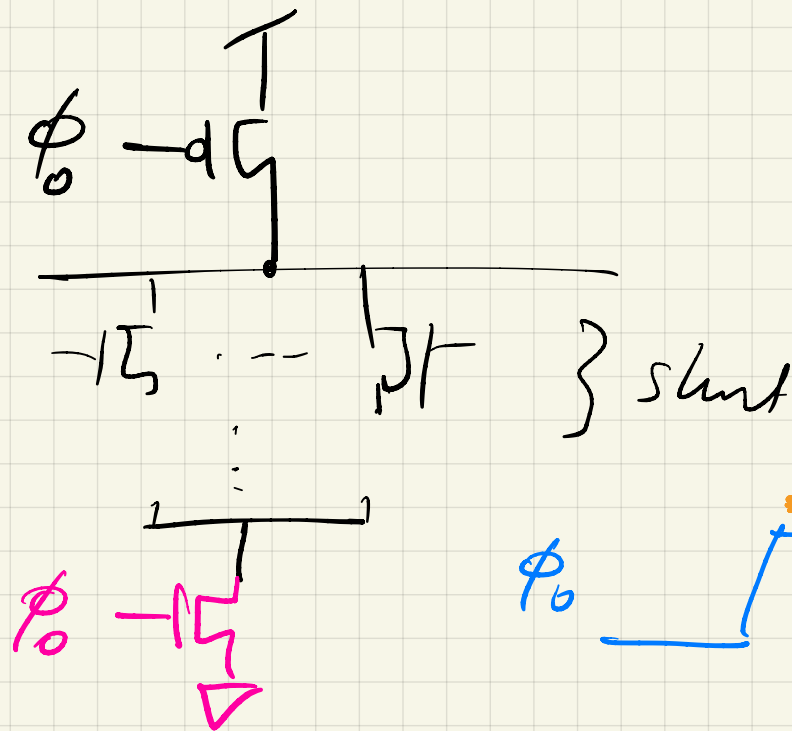 ϕ₀
} shunt
ϕ₀
ϕ₀